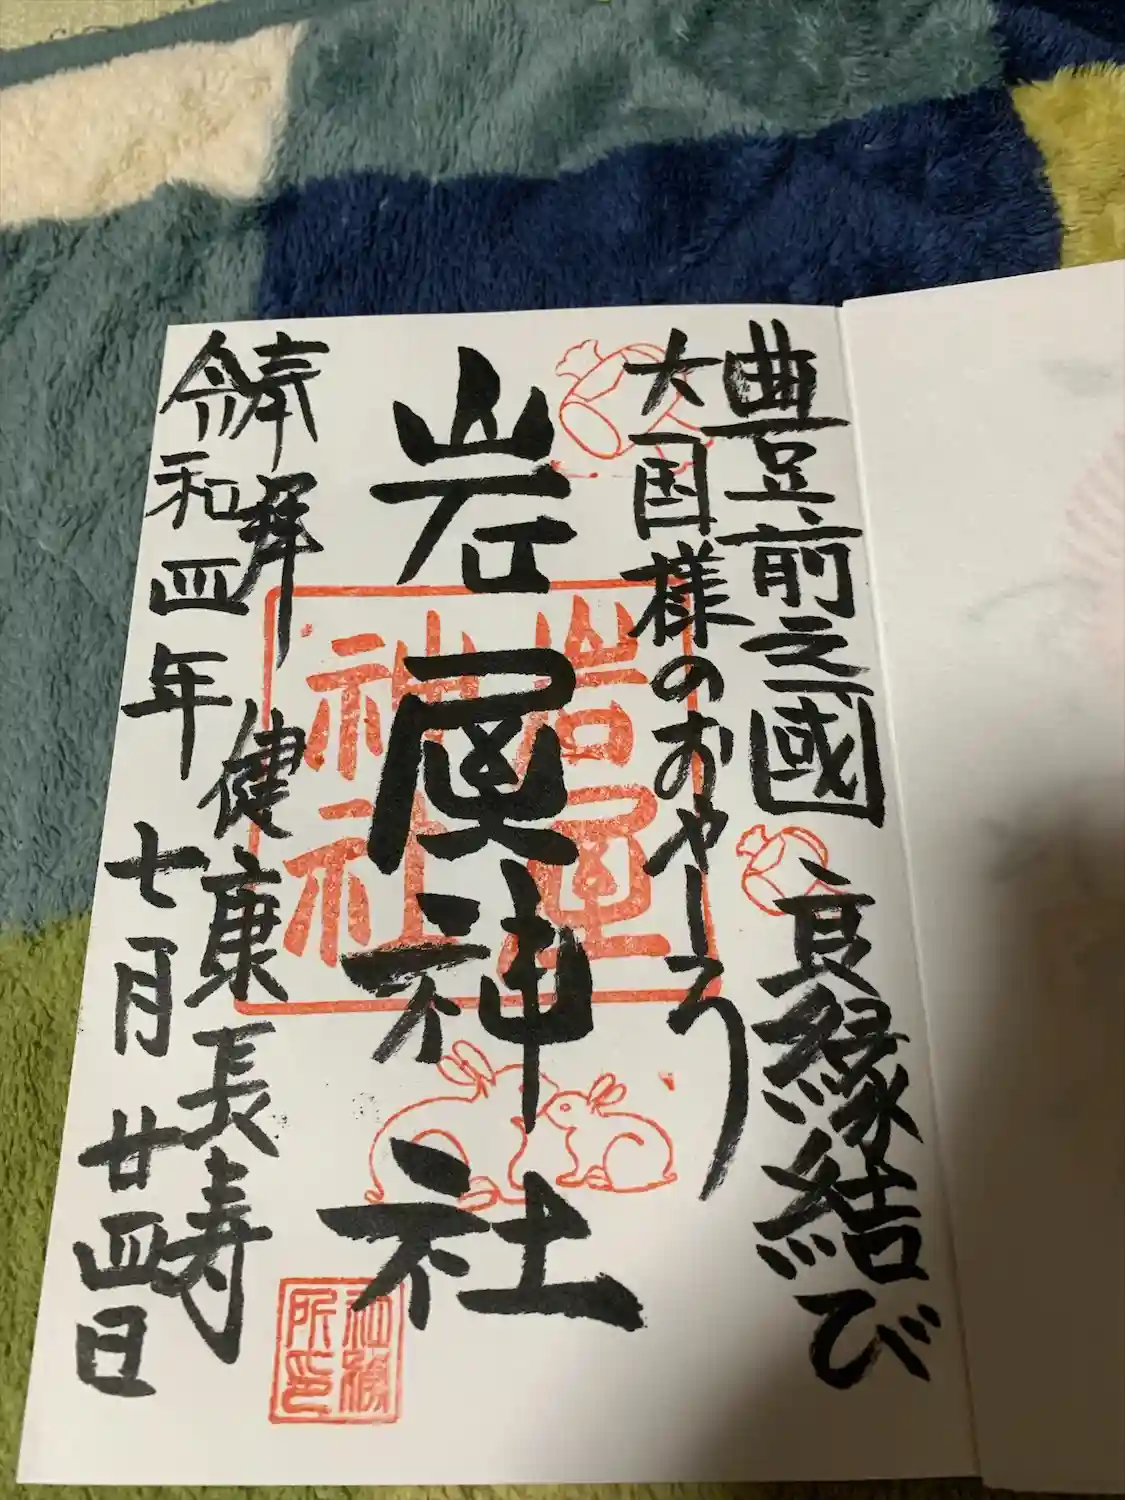 豊前之國 良縁結び
大国様のおやしろ
岩屋神社
奉拝 健康長寿
令和四年 七月 廿四日
岩屋
神社
社務
所印